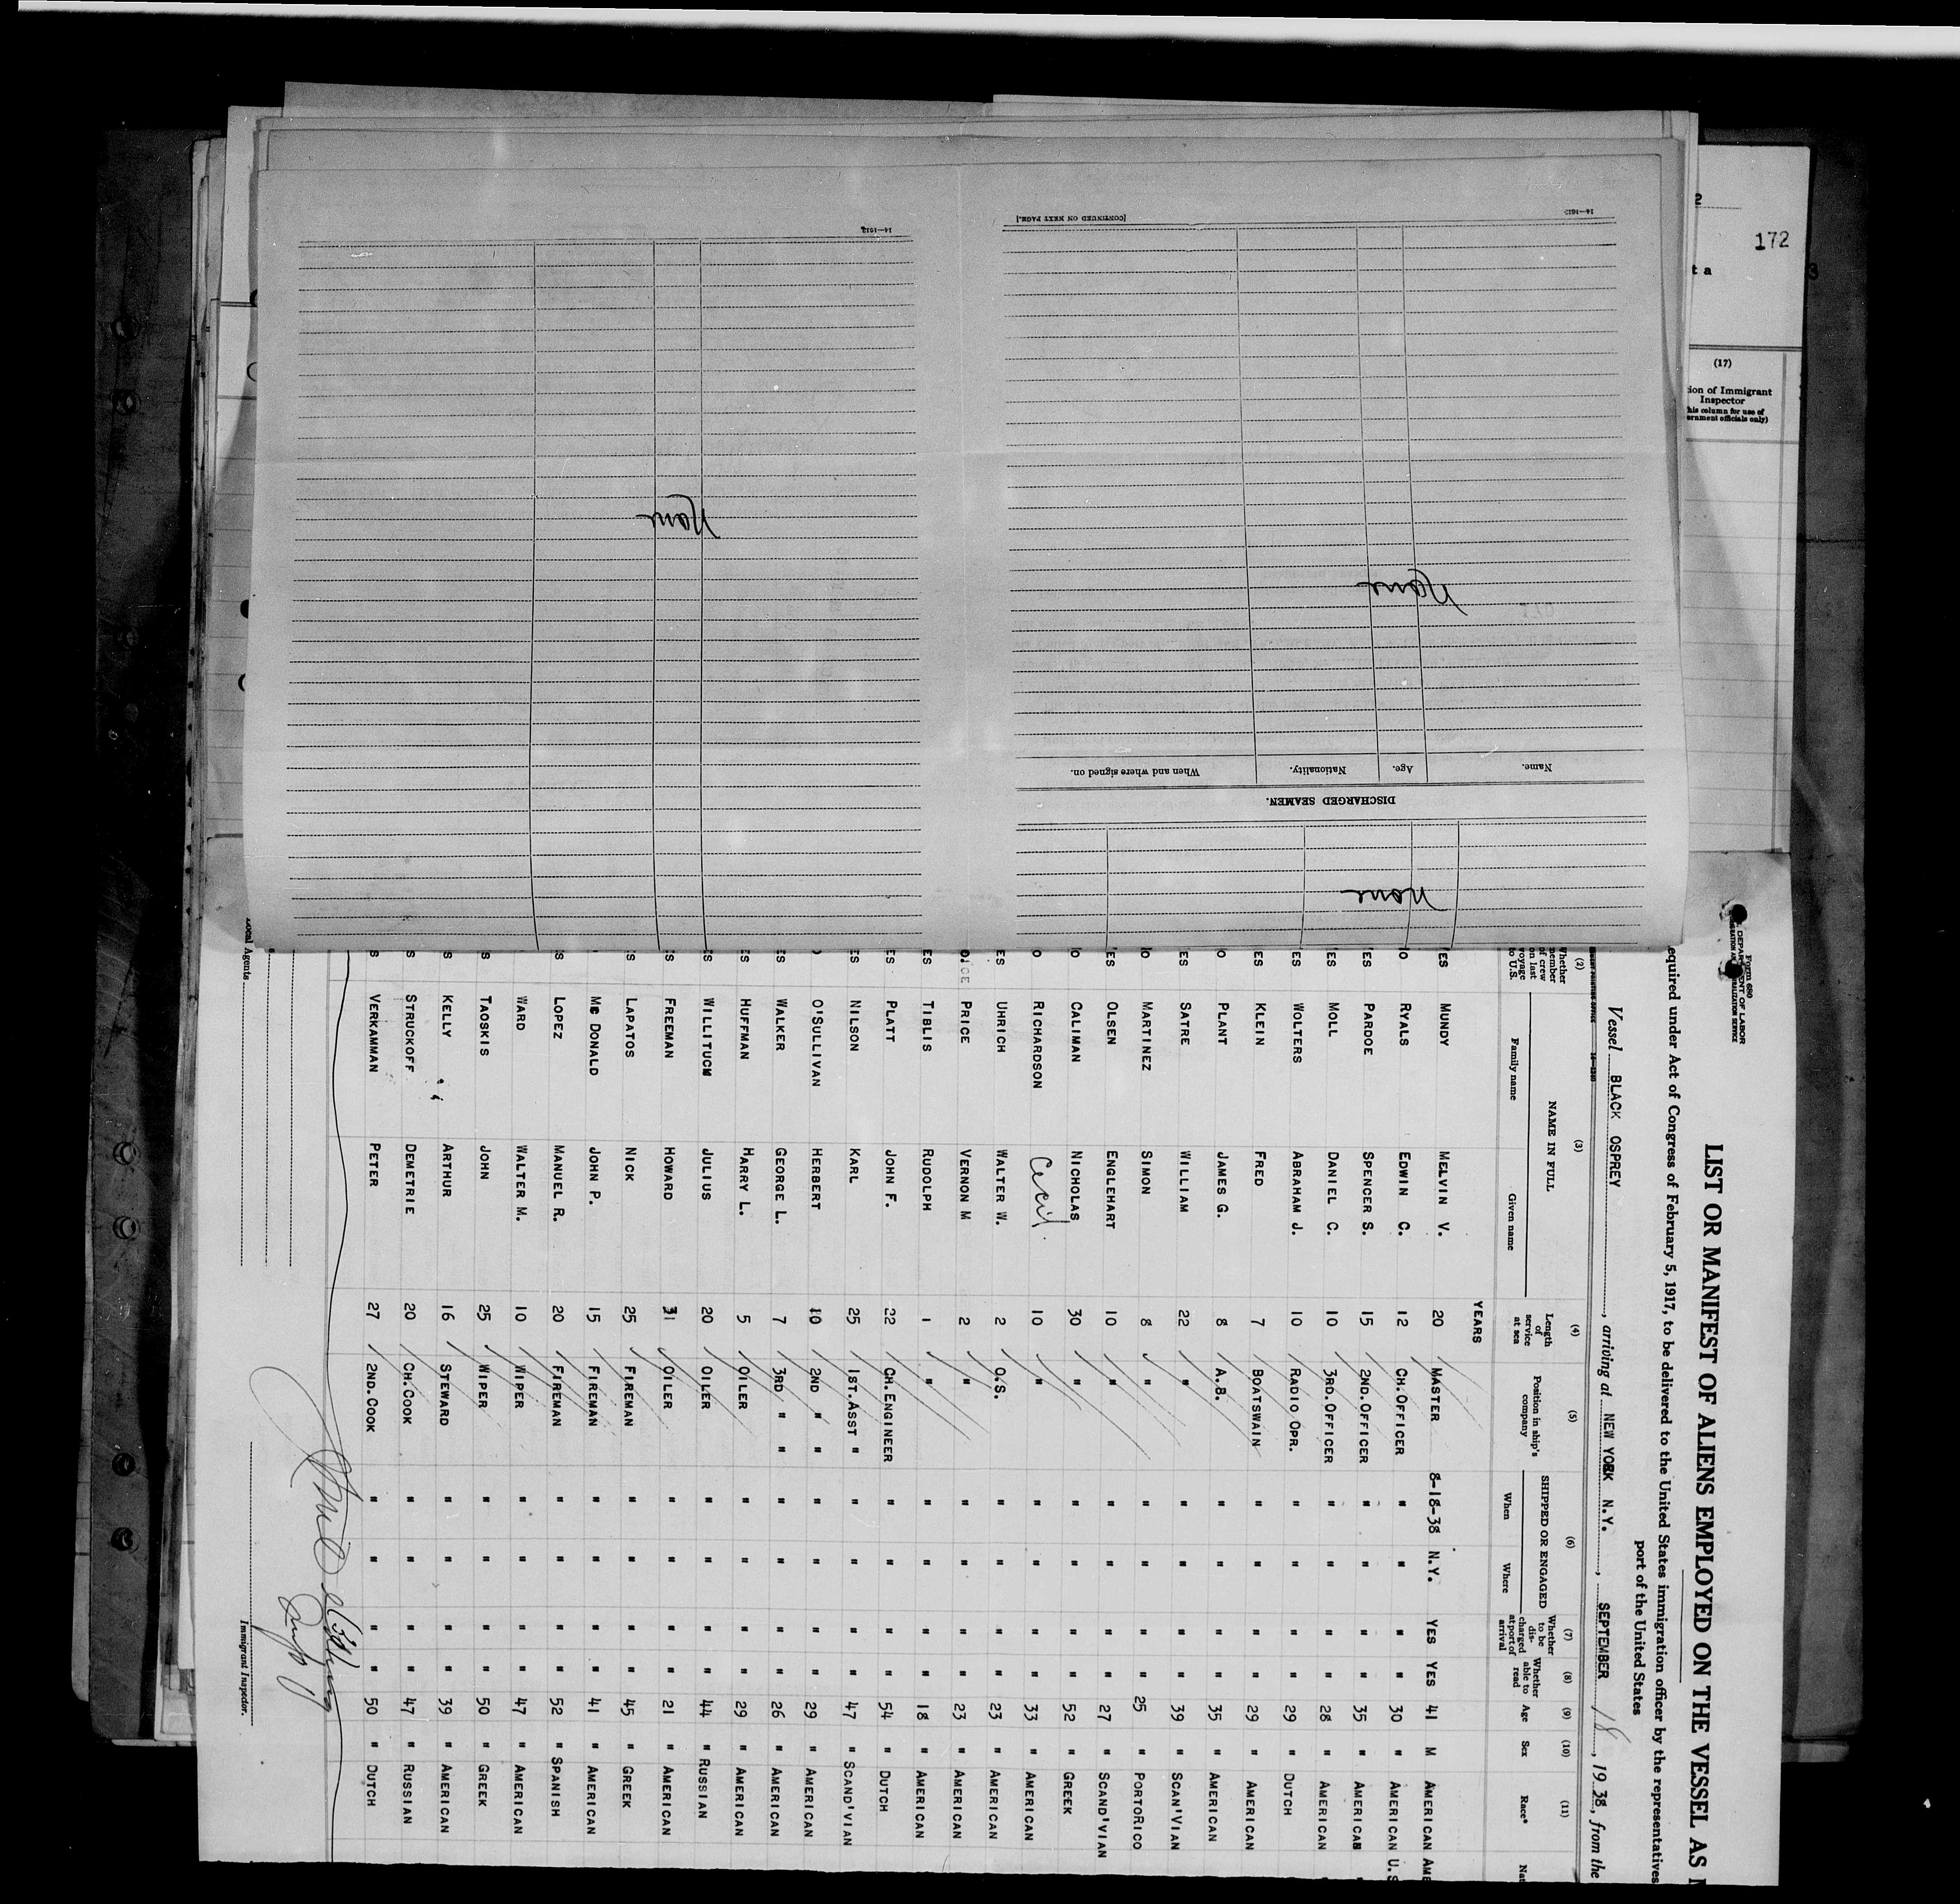 172
(17)
ion of Immigrant
Inspector
his column for use of
ernment officials only)
14—1613
14—1613
[CONTINUED ON NEXT PAGE.]
None
None
Name. Age. Nationality. When and where signed on.
DISCHARGED SEAMEN.
None
Form 680
LIST OR MANIFEST OF ALIENS EMPLOYED ON THE VESSEL AS
equired under Act of Congress of February 5, 1917, to be delivered to the United States immigration officer by the representatives
port of the United States
Vessel BLACK OSPREY, arriving at NEW YORK N.Y., SEPTEMBER 18, 1938, from the
(2) (3) (4) (5) (6) (7) (8) (9) (10) (11)
Whether member of crew on last voyage to U.S. NAME IN FULL Family name Given name Length of service at sea Position in ship's company SHIPPED OR ENGAGED When Where Whether to be discharged at port of arrival Whether able to read Age Sex Race* Nat
YEARS
ES MUNDY MELVIN V. 20 MASTER 8-18-38 N.Y. YES YES 41 M AMERICAN AME
O RYALS EDWIN C. 12 CH.OFFICER " " " " 30 " AMERICAN U.S
ES PARDOE SPENCER S. 15 2ND.OFFICER " " " " 35 " AMERICAN "
ES MOLL DANIEL C. 10 3RD.OFFICER " " " " 28 " AMERICAN "
ES WOLTERS ABRAHAM J. 10 RADIO OPR. " " " " 29 " DUTCH
ES KLEIN FRED 7 BOATSWAIN " " " " 29 " AMERICAN
O PLANT JAMES G. 8 A.B. " " " " 35 " AMERICAN
ES SATRE WILLIAM 22 " " " " " 39 " SCAN'VIAN
O MARTINEZ SIMON 8 " " " " " 25 " PORTORICO
ES OLSEN ENGLEHART 10 " " " " " 27 " SCAND'VIAN
O CALIMAN NICHOLAS 30 " " " " " 52 " GREEK
O RICHARDSON Cecil 10 " " " " " 33 " AMERICAN
ES UHRICH WALTER W. 2 O.S. " " " " 23 " AMERICAN
PRICE VERNON M 2 " " " " " 23 " AMERICAN
ES TIBLIS RUDOLPH 1 " " " " " 18 " AMERICAN
ES PLATT JOHN F. 22 CH.ENGINEER " " " " 54 " DUTCH
ES NILSON KARL 25 1ST.ASST " " " " " 47 " SCAND'VIAN
O'SULLIVAN HERBERT 10 2ND " " " " " " 29 " AMERICAN
ES WALKER GEORGE L. 7 3RD " " " " " " 26 " AMERICAN
ES HUFFMAN HARRY L. 5 OILER " " " " 29 " AMERICAN
ES WILLITUCW JULIUS 20 OILER " " " " 44 " RUSSIAN
FREEMAN HOWARD 31 OILER " " " " 21 " AMERICAN
S LAPATOS NICK 25 FIREMAN " " " " 45 " GREEK
MC DONALD JOHN P. 15 FIREMAN " " " " 41 " AMERICAN
S LOPEZ MANUEL R. 20 FIREMAN " " " " 52 " SPANISH
WARD WALTER M. 10 WIPER " " " " 47 " AMERICAN
S TAOSKIS JOHN 25 WIPER " " " " 50 " GREEK
S KELLY ARTHUR 16 STEWARD " " " " 39 " AMERICAN
S STRUCKOFF DEMETRIE 20 CH.COOK " " " " 47 " RUSSIAN
S VERKAMMAN PETER 27 2ND.COOK " " " " 50 " DUTCH
Local Agents.
Immigrant Inspector.